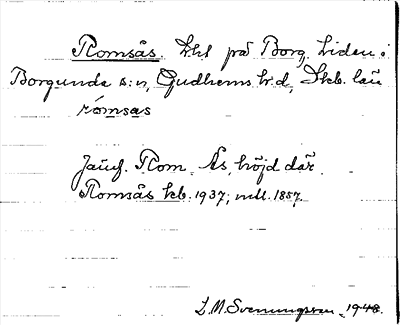 Romsås. Lht på Borg. Liden i
Borgunda s:n, Gudhems h:d, Skb. län
rómsas
Jämf. Rom. Ås, höjd där.
Romsås kb. 1937; mtl. 1857.
L.M. Svenungsson 1948.